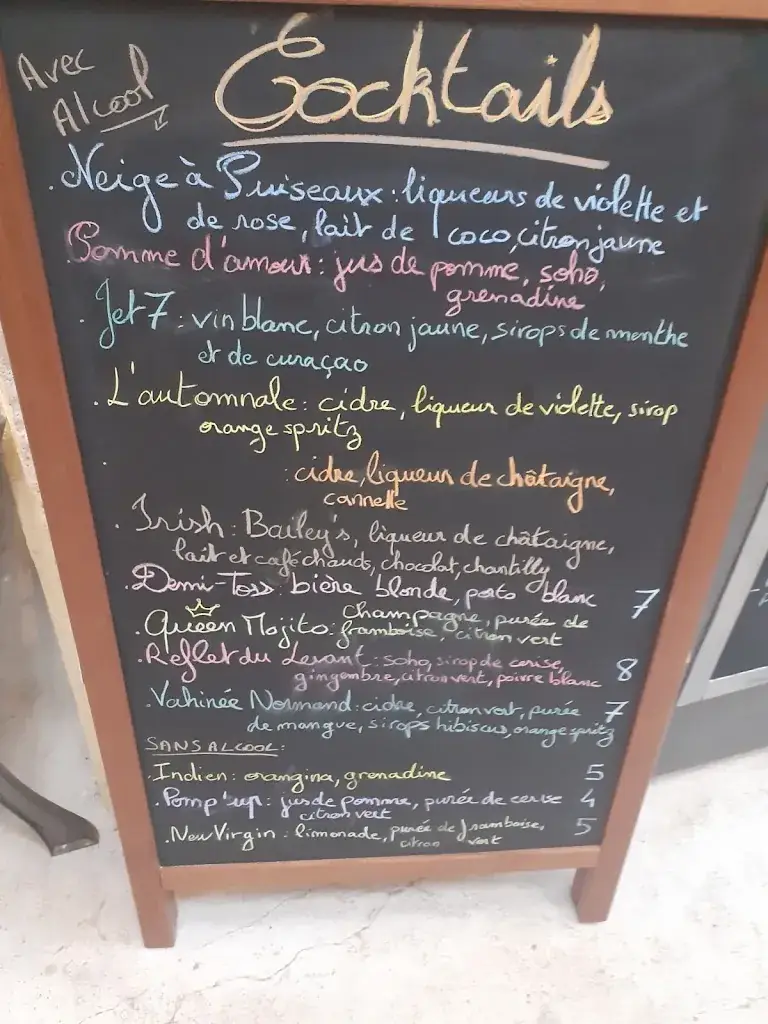 Avec
Alcool
Cocktails
. Neige à Puiseaux : liqueurs de violette et
de rose, lait de coco, citron jaune
Pomme d'amour : jus de pomme, soho,
grenadine
. Jet 7 : vin blanc, citron jaune, sirops de menthe
et de curaçao
. L'automnale : cidre, liqueur de violette, sirop
orange spritz
. : cidre, liqueur de châtaigne,
cannelle
. Irish : Bailey's, liqueur de châtaigne,
lait et café chauds, chocolat, chantilly
. Demi-Toss : bière blonde, porto blanc 7
. Queen Mojito : champagne, purée de
framboise, citron vert
. Reflet du Levant : soho, sirop de cerise, 8
gingembre, citron vert, poivre blanc
. Vahinée Normand : cidre, citron vert, purée 7
de mangue, sirops hibiscus, orange spritz
SANS ALCOOL :
. Indien : orangina, grenadine 5
. Pomp'up : jus de pomme, purée de cerise 4
citron vert
. New Virgin : limonade, purée de framboise, 5
citron vert